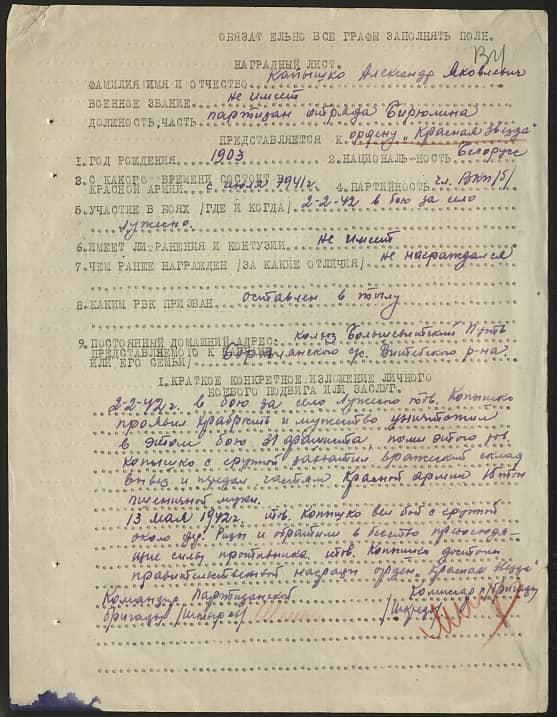 ОБЯЗАТЕЛЬНО ВСЕ ГРАФЫ ЗАПОЛНЯТЬ ПОЛН.
НАГРАДНЫЙ ЛИСТ.
ФАМИЛИЯ ИМЯ И ОТЧЕСТВО Копышко Александр Яковлевич
ВОЕННОЕ ЗВАНИЕ не имеет
ДОЛЖНОСТЬ, ЧАСТЬ партизан отряда Бирюлина
ПРЕДСТАВЛЯЕТСЯ К ордену „Красная звезда"
1. ГОД РОЖДЕНИЯ 1903 2. НАЦИОНАЛЬНОСТЬ белорусс
3. С КАКОГО ВРЕМЕНИ СОСТОИТ
КРАСНОЙ АРМИИ с июля 1941г. 4. ПАРТИЙНОСТЬ чл. ВКП/б/
5. УЧАСТИЕ В БОЯХ /ГДЕ И КОГДА/ 2-2-42 в бою за село
Лужесно.
6. ИМЕЕТ ЛИ РАНЕНИЯ И КОНТУЗИИ не имеет
7. ЧЕМ РАНЕЕ НАГРАЖДЕН /ЗА КАКИЕ ОТЛИЧИЯ/ не награждался
8. КАКИМ РВК ПРИЗВАН оставлен в тылу
9. ПОСТОЯННЫЙ ДОМАШНИЙ АДРЕС: колхоз Большевитский Путь
ПРЕДСТАВЛЯЕМОГО К с/с. Витебского р-на
ИЛИ ЕГО СЕМЬИ/
I. КРАТКОЕ КОНКРЕТНОЕ ИЗЛОЖЕНИЕ ЛИЧНОГО
БОЕВОГО ПОДВИГА ИЛИ ЗАСЛУГ.
2-2-42 г. в бою за село Лужесно тов. Копышко
проявил храбрость и мужество уничтожил
в этом бою 31 фашиста, помимо этого тов.
Копышко с группой захватили вражеский склад
вывез и передал частям Красной армии тонн
пшеничной муки.
13 мая 1942г. тов. Копышко вел бой с группой
около дер. и обратили в бегство превосходя-
щие силы противника. тов. Копышко достоин
правительственной награды орден „Красная Звезда"
Командир Партизанской Комиссар бригады
бригады /Шмырев/